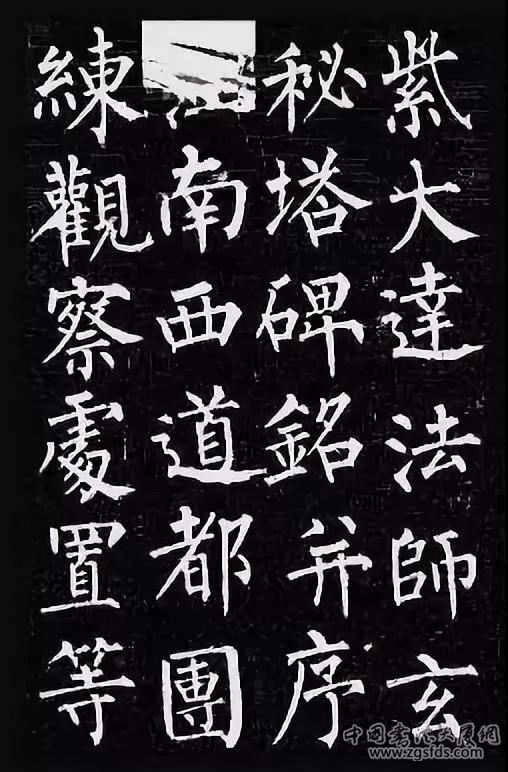 紫大達法師玄
秘塔碑銘并序
南西道都團
練觀察處置等
中國書法大展網
www.zgsfds.com